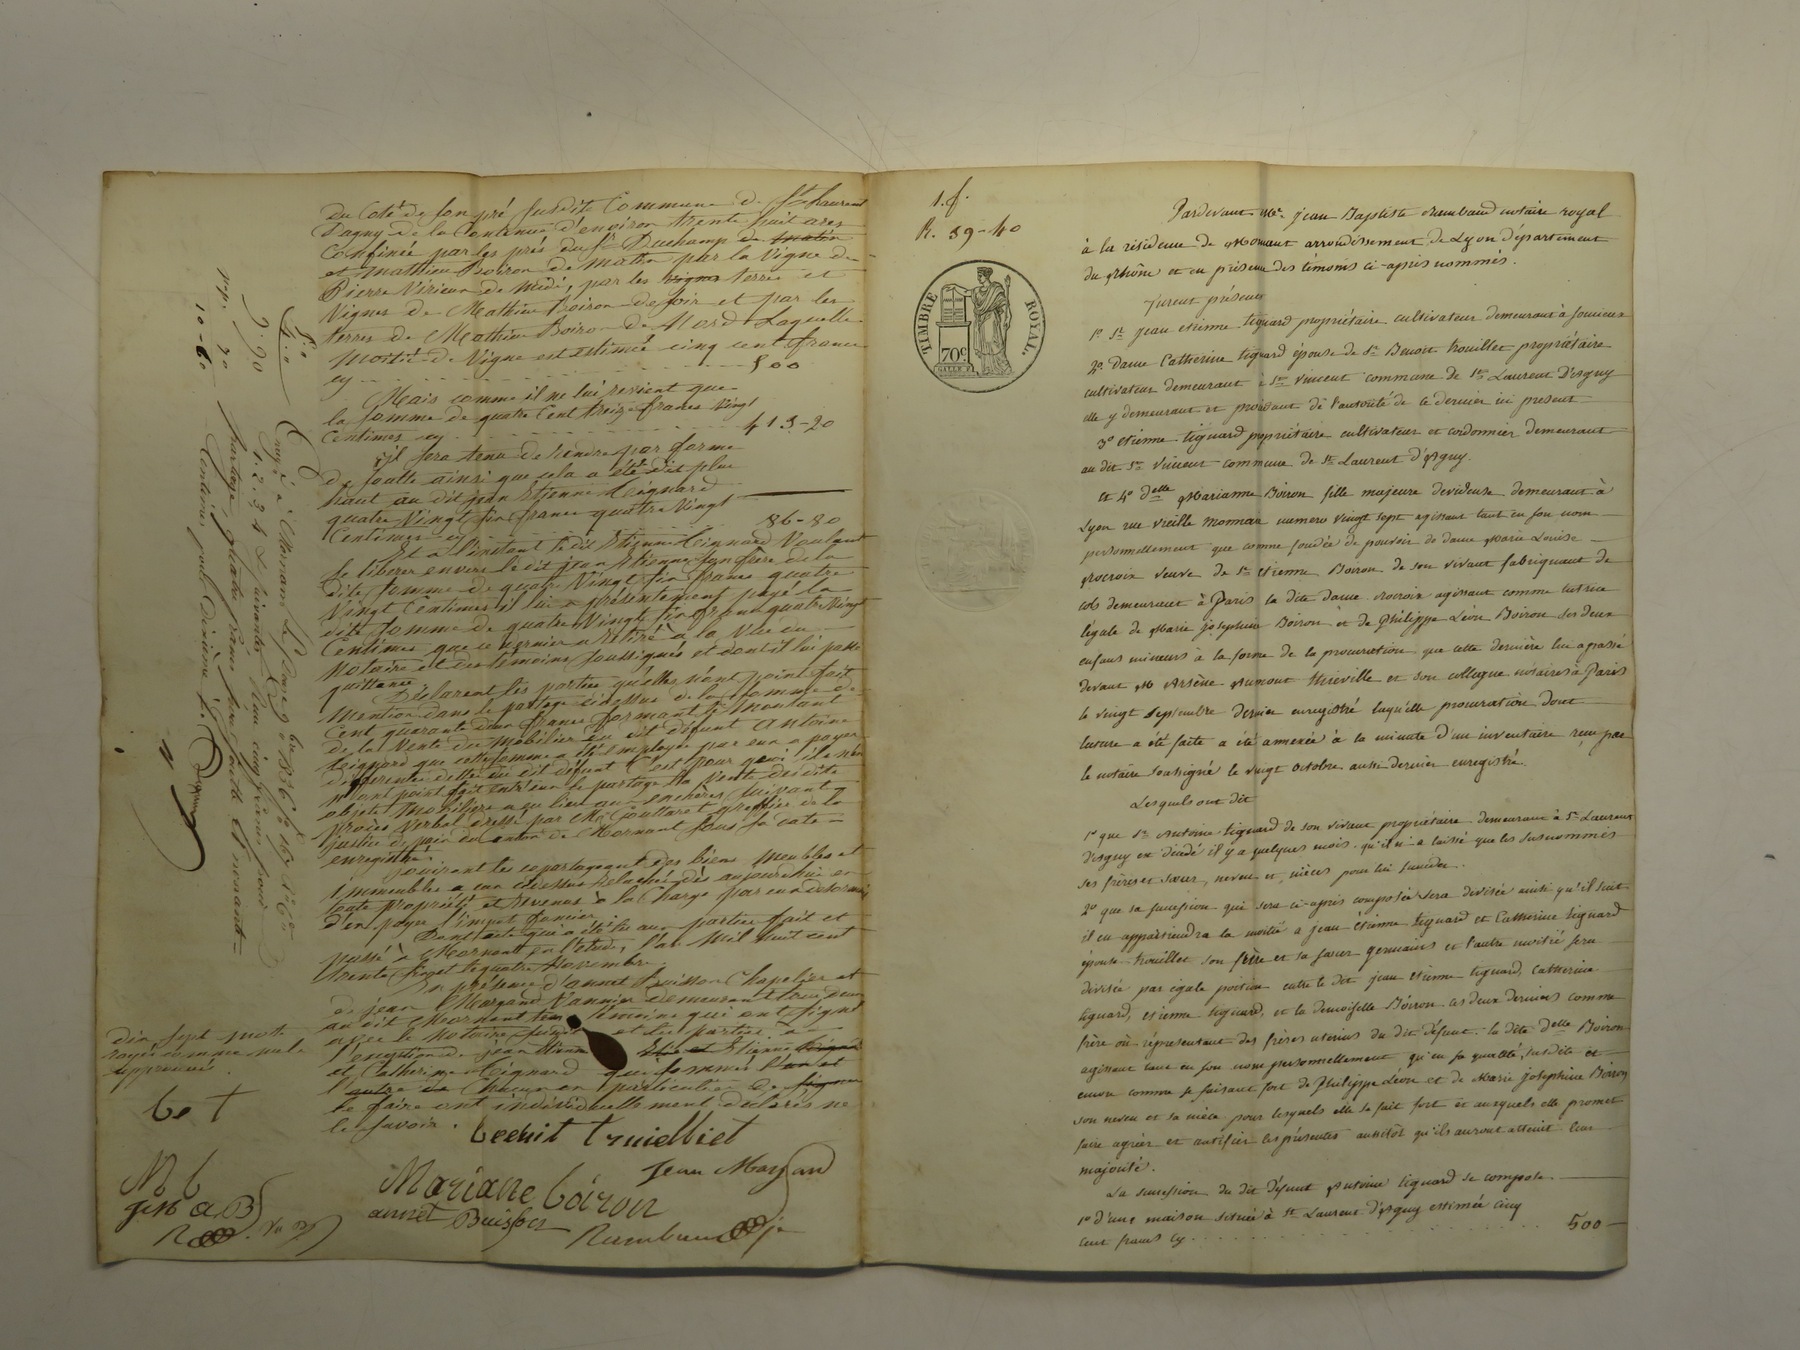 du Coté de son pré susdite Commune de St Laurent
d'agny de la Contenue d'environ trente huit ares
Confinée par les prés du Sr Duchamp de matin
et Mathieu Boiron de matin par la Vigne de
Pierre Virieux de Midi, par les vignes terre et
Vignes de Mathieu Boiron de soir et par les
terres de Mathieu Boiron de Nord. Laquelle
moitié de Vigne est estimée cinq cent francs
cy 500
Mais comme il ne lui revient que
la somme de quatre Cent treize francs vingt
Centimes cy 413-20
il sera tenu de rendre par forme
de soulte ainsi que cela a été dit plus
haut au dit jean Etienne Teignard
quatre Vingt six francs quatre Vingt
Centimes cy 86-80
Et à l'instant le dit Etienne Teignard Voulant
se liberer envers le dit jean Etienne son frère de la
dite somme de quatre Vingt six francs quatre
Vingt Centimes il lui a présentement payé la
dite somme de quatre Vingt six francs quatre Vingt
Centimes que ce dernier a retiré à la Vue du
Notaire et des témoins soussignés et dont il lui passe
quittance.
Déclarent les parties quelles n'ont point fait
mention dans le partage cidessus de la somme de
Cent quarante deux francs formant le montant
de la Vente du mobilier du dit défunt Antoine
teignard que cette somme a été employée par eux a payer
differentes dettes du dit défunt C'est pour quoi ils n'en
n'ont point fait entr'eux le partage la Vente des dits
objets mobiliers a eu lieu aux enchères suivant
procès Verbal dressé par Me Gouttaret greffier de la
justice de paix du canton de Mornant sous sa date
enregistré.
jouiront les copartageant des biens meubles et
immeubles a eux cidessus relachés dès aujourd'hui en
toute propriété et revenus à la Charge par eux désormais
d'en payer l'impot foncier.
Dont acte qui a été lu aux parties fait et
passé à Mornant en l'etude, l'an Mil huit cent
trente six et le quatre Novembre.
En présence d'annet Buisson Chapelier et
de jean Margand Vannier demeurant tous deux
au dit Mornant témoins qui ont signé
avec le Notaire et les parties à
l'exception de jean Etienne Etienne
et Catherine teignard que sommés l'un et
l'autre de Chacun en particulier de signer
le faire ont individuellement déclarés ne
le savoir.
benoit trouilliet
Jean Margand
Mariane boiron
annet Buisson
Rambaud
dix sept mots
rayés comme nuls
approuvés.
be t
M b
Jen a. B
1. f.
R. 39-40
TIMBRE ROYAL.
70c.
Pardevant Me. jean Baptiste Rambaud notaire royal
à la résidence de Mornant arrondissement de Lyon département
du Rhône et en présence des témoins ci-après nommés.
furent présens
1o Sr jean etienne tiguard propriétaire cultivateur demeurant à soucieux
2o. dame Catherine tiguard épouse de Sr Benoit trouillet propriétaire
cultivateur demeurant à St vincent commune de St Laurent D'agny
elle y demeurant et procédant de l'autorité de ce dernier ici présent
3o etienne tiguard propriétaire cultivateur et cordonnier demeurant
au dit St vincent commune de St Laurent d'Agny.
et 4o delle Marianne Boiron fille majeure devideuse demeurant à
Lyon rue vieille monnaie numero vingt sept agissant tant en son nom
personnellement que comme fondée de pouvoir de dame Marie Louise
Rocroix veuve de Sr etienne Boiron de son vivant fabriquant de
cols demeurant à Paris la dite dame Rocroix agissant comme tutrice
légale de Marie josephine Boiron et de Philippe Léon Boiron ses deux
enfans mineurs à la forme de la procuration que cette dernière lui a passé
devant M Arsène Aumont thiéville et son collegue notaires à Paris
le vingt septembre dernier enregistré laquelle procuration dont
lecture a été faite a été annexée à la minute d'un inventaire reçu par
le notaire soussigné le vingt octobre aussi dernier enregistré.
Lesquels ont dit
1o que Sr Antoine tiguard de son vivant propriétaire demeurant à St Laurent
d'agny est décédé il y a quelques mois qu'il n'a laissé que les susnommés
ses frères et sœur, neveu et nièces pour lui succéder.
2o que sa succession qui sera ci-après composée sera divisée ainsi qu'il suit
il en appartiendra la moitié a jean étienne tiguard et Catherine tiguard
épouse trouillet son frère et sa sœur germains et l'autre moitié sera
divisée par égale portion entre le dit jean etienne tiguard, Catherine
tiguard, etienne tiguard, et la demoiselle Boiron ces deux derniers comme
frère ou réprésentant des frères uterins du dit défunt. la dite delle Boiron
agissant tant en son nom personnellement, qu'en sa qualité susdite et
encore comme se faisant fort de Philippe Léon et de Marie josephine Boiron
son neveu et sa nièce pour lesquels elle se fait fort et auxquels elle promet
faire agréer et ratifier les présentes aussitôt qu'ils auront atteint leur
majorité.
La succession du dit défunt Antoine tiguard se compose
1o d'une maison située à St Laurent d'Agny estimée cinq
cent francs cy 500